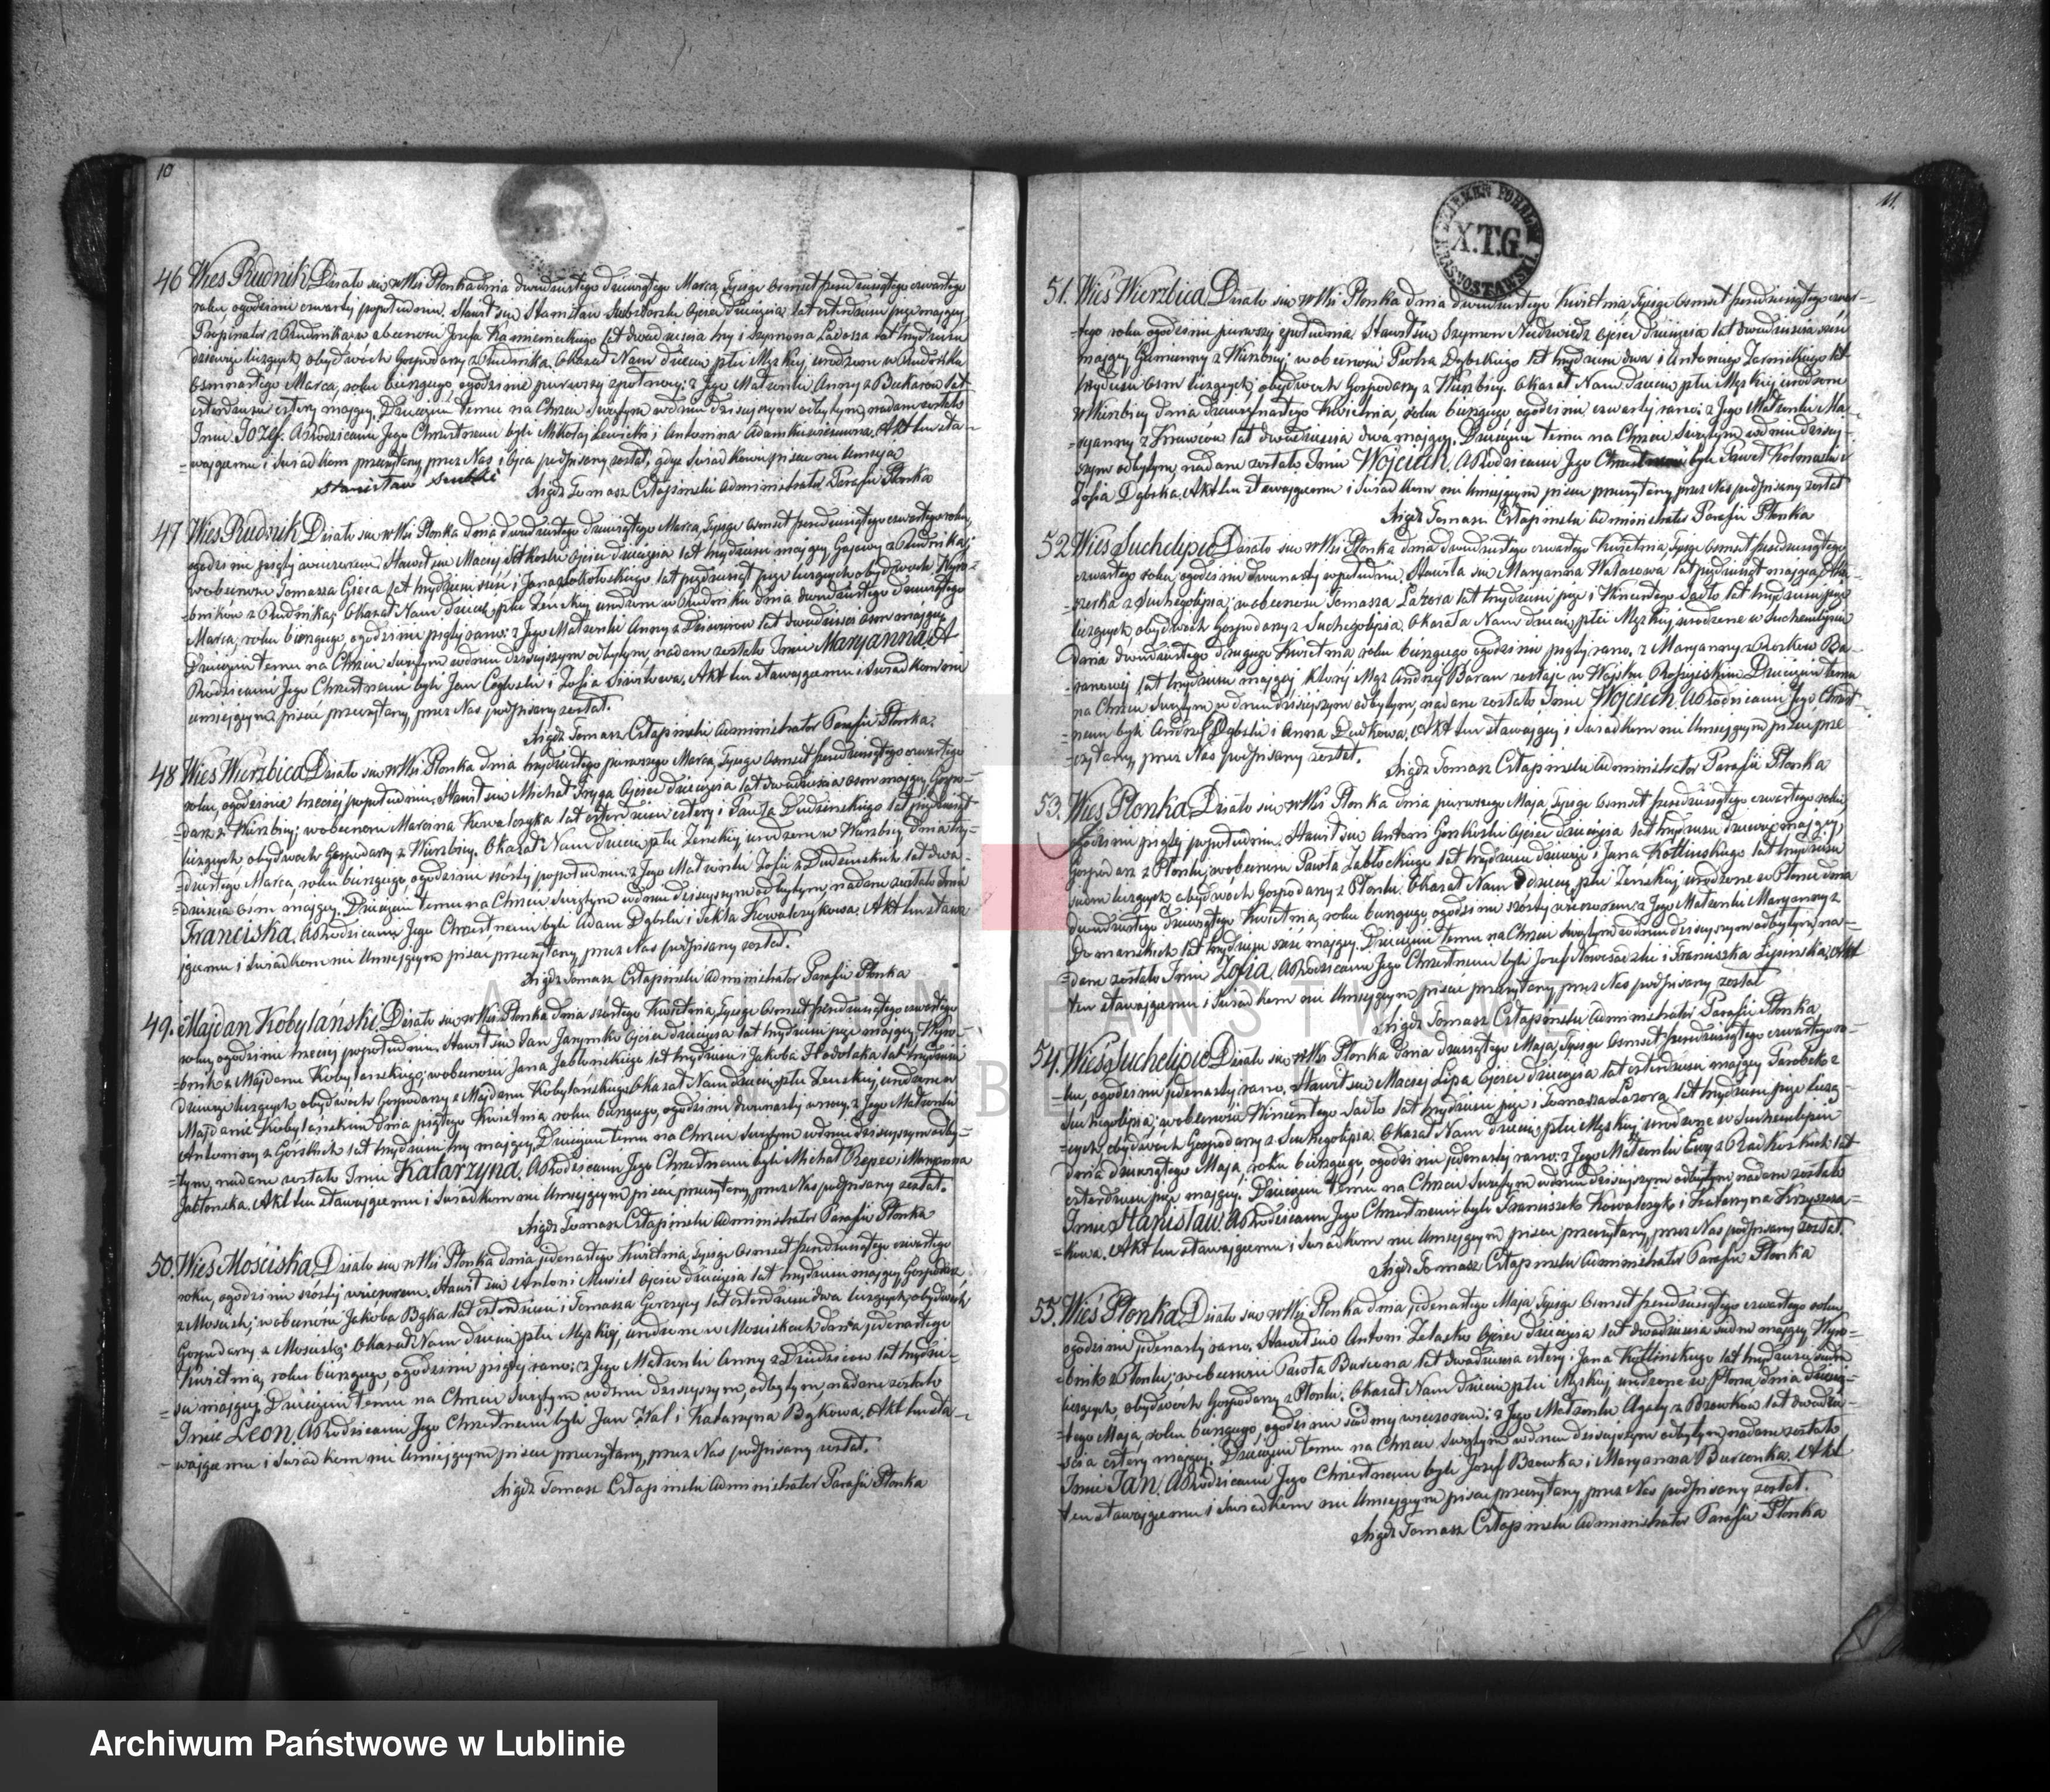 10
46 Wieś Rudnik. Działo się w Wsi Płonka dnia dwudziestego dziewiątego Marca, Tysiąc Ośmset pięćdziesiątego czwartego
roku o godzinie czwartej popołudniu. Stawił się Stanisław Ojciec dziecięcia lat czterdzieści pięć mający
Propinator z Rudnika w obecności Józefa Kamienieckiego lat dwadzieścia trzy i Szymona Lacossa lat trzydzieści
dziewięć liczących obydwóch Gospodarzy z Rudnika. Okazał Nam dziecię płci Męzkiej urodzone w Rudniku
osmnastego Marca, roku bieżącego o godzinie pierwszej z północy; z Jego Małżonki Anny z lat
czterdzieści cztery mającej. Dziecięciu temu na Chrzcie Świętym w dniu dzisiejszym odbytym, nadane zostało
Imie Jozef. A Rodzicami Jego Chrzestnemi byli Mikołaj i Antonina Akt ten sta-
-wającemu i świadkom przeczytany przez Nas i Ojca podpisany został, gdyż świadkowie pisać nie umieją
Stanisław
Xiądz Tomasz Człapinski Administrator Parafii Płonka
47 Wieś Rudnik. Działo się w Wsi Płonka dnia dwudziestego dziewiątego Marca, Tysiąc Ośmset pięćdziesiątego czwartego roku,
o godzinie piątej wieczorem. Stawił się Maciej Ojciec dziecięcia lat trzydzieści mający, Gajowy z Rudnika;
w obecności Tomasza Gieca lat trzydzieści sześć i Jana Sokołowskiego lat pięćdziesiąt pięć liczących obydwóch Wyro-
-bników z Rudnika; Okazał Nam dziecię płci Żeńskiej urodzone w Rudniku dnia dwudziestego dziewiątego
Marca, roku bieżącego, o godzinie piątej rano; z Jego Małżonki Anny z lat dwadzieścia osm mającej
Dziecięciu temu na Chrzcie Świętym w dniu dzisiejszym odbytym, nadane zostało Imie Maryanna. A
Rodzicami Jego Chrzestnemi byli Jan i Zofia Akt ten stawającemu i świadkom nie
umiejącym pisać przeczytany, przez Nas podpisany został.
Xiądz Tomasz Człapinski Administrator Parafii Płonka
48 Wieś Wierzbica. Działo się w Wsi Płonka dnia trzydziestego pierwszego Marca, Tysiąc Ośmset pięćdziesiątego czwartego
roku, o godzinie trzeciej popołudniu. Stawił się Michał Fryga Ojciec dziecięcia lat dwadzieścia osm mający, Gospo-
-darz z Wierzbicy; w obecności Marcina Kowalczyka lat czterdzieści cztery i Pawła Dudzinskiego lat pięćdziesiąt
liczących, obydwóch Gospodarzy z Wierzbicy. Okazał Nam dziecię płci Żeńskiej urodzone w Wierzbicy dnia trzy-
-dziestego Marca, roku bieżącego, o godzinie szóstej popołudniu; z Jego Małżonki Zofii z Dudzinskich lat dwa-
-dzieścia osm mającej. Dziecięciu temu na Chrzcie Świętym w dniu dzisiejszym odbytym, nadane zostało Imie
Franciska. A Rodzicami Jego Chrzestnemi byli Adam Dąbski i Tekla Kowalczykowa. Akt ten stawa-
jącemu i świadkom nie umiejącym pisać przeczytany, przez Nas podpisany został.
Xiądz Tomasz Człapinski Administrator Parafii Płonka
49. Majdan Kobylański. Działo się w Wsi Płonka dnia szóstego Kwietnia, Tysiąc Ośmset pięćdziesiątego czwartego
roku, o godzinie trzeciej popołudniu. Stawił się Jan Ojciec dziecięcia lat trzydzieści pięć mający, Wyro-
-bnik z Majdanu Kobylanskiego; w obecności Jana Jabłonskiego lat trzydzieści i Jakóba lat trzydzieści
dziewięć liczących, obydwóch Gospodarzy z Majdanu Kobylańskiego. Okazał Nam dziecię płci Żeńskiej, urodzone w
Majdanie Kobylanskim dnia piątego Kwietnia, roku bieżącego, o godzinie dwunastej w nocy; z Jego Małżonki
Antoniny z Górskich lat trzydzieści trzy mającej. Dziecięciu temu na Chrzcie Świętym w dniu dzisiejszym odby-
-tym, nadane zostało Imie Katarzyna. A Rodzicami Jego Chrzestnemi byli Michał Repeć i Maryanna
Jabłonska. Akt ten stawającemu i świadkom nie umiejącym pisać, przeczytany, przez Nas podpisany został.
Xiądz Tomasz Człapinski Administrator Parafii Płonka
50. Wieś Mościska. Działo się w Wsi Płonka dnia jedenastego Kwietnia, Tysiąc Ośmset pięćdziesiątego czwartego
roku, o godzinie szóstej wieczorem. Stawił się Antoni Musiel Ojciec dziecięcia lat trzydzieści mający, Gospodarz
z Mościsk; w obecności Jakóba Bąka lat czterdzieści i Tomasza lat czterdzieści dwa liczących, obydwóch
Gospodarzy z Mościsk; Okazał Nam dziecię płci Męzkiej urodzone w Mościskach dnia jedenastego
Kwietnia, roku bieżącego, o godzinie piątej rano; z Jego Małżonki Anny z lat trzydzie-
-ści mającej. Dziecięciu temu na Chrzcie Świętym w dniu dzisiejszym, odbytym, nadane zostało
Imie Leon. A Rodzicami Jego Chrzestnemi byli Jan i Katarzyna Bąkowa. Akt ten sta-
-wającemu i świadkom nie umiejącym pisać przeczytany, przez Nas podpisany został.
Xiądz Tomasz Człapinski Administrator Parafii Płonka
11.
X.T.G.
51. Wieś Wierzbica. Działo się w Wsi Płonka dnia dwudziestego Kwietnia, Tysiąc Ośmset pięćdziesiątego czwar-
-tego roku o godzinie pierwszej z południa. Stawił się Szymon Niedzwiedz Ojciec dziecięcia lat dwadzieścia sześć
mający Gumienny z Wierzbicy; w obecności Piotra Dąbskiego lat trzydzieści dwa i Antoniego lat
trzydzieści osm liczących; obydwóch Gospodarzy z Wierzbicy. Okazał Nam dziecię płci Męzkiej urodzone
w Wierzbicy dnia Kwietnia, roku bieżącego o godzinie czwartej rano; z Jego Małżonki Ma-
-ryanny z Krawców lat dwadzieścia dwa mającej. Dziecięciu temu na Chrzcie Świętym w dniu dzisiej-
szym odbytym, nadane zostało Imie Wojciech. A Rodzicami Jego Chrzestnemi byli Paweł i
Zofia Dąbska. Akt ten stawającemu i świadkom nie umiejącym pisać przeczytany przez Nas podpisany został
Xiądz Tomasz Człapinski Administrator Parafii Płonka
52 Wieś Suchelipie. Działo się w Wsi Płonka dnia dwudziestego czwartego Kwietnia, Tysiąc Ośmset pięćdziesiątego
czwartego roku, o godzinie dwunastej w południe, Stawiła się Maryanna lat pięćdziesiąt mająca, Aku-
-szerka z Suchegolipia; w obecności Tomasza Lazora lat trzydzieści pięć i Wincentego Sadło lat trzydzieści pięć
liczących, obydwóch Gospodarzy z Suchegolipia, Okazała Nam dziecię płci Męzkiej urodzone w Suchemlipiu
dnia dwudziestego drugiego Kwietnia roku bieżącego o godzinie piątej rano. z Maryanny z Ba-
-ranowej lat trzydzieści mającej której Mąż Andrzej Baran zostaje w Wojsku Rossyiskim. Dziecięciu temu
na Chrzcie Świętym w dniu dzisiejszym odbytym, nadane zostało Imie Wojciech. A Rodzicami Jego Chrzest-
-nemi byli Andrzej Dąbski i Anna Dudkowa. Akt ten stawającej i świadkom nie umiejącym pisać prze-
-czytany, przez Nas podpisany został.
Xiądz Tomasz Człapinski Administrator Parafii Płonka
53. Wieś Płonka. Działo się w Wsi Płonka dnia pierwszego Maja, Tysiąc Ośmset pięćdziesiątego czwartego roku
o godzinie piątej popołudniu. Stawił się Antoni Ojciec dziecięcia lat trzydzieści dziewięć mający,
Gospodarz z Płonki; w obecności Pawła Zabłockiego lat trzydzieści dziewięć i Jana Kotlinskiego lat trzydzieści
siedm liczących, obydwóch Gospodarzy z Płonki. Okazał Nam dziecię płci Żenskiej urodzone w Płonce dnia
dwudziestego dziewiątego Kwietnia, roku bieżącego, o godzinie szóstej wieczorem; z Jego Małżonki Maryanny z
Domanskich lat trzydzieści sześć mającej. Dziecięciu temu na Chrzcie Świętym w dniu dzisiejszym odbytym, na-
-dane zostało Imie Zofia. A Rodzicami Jego Chrzestnemi byli Jozef i Franciszka Lipinska, Akt
ten stawającemu i świadkom nie umiejącym pisać przeczytany, przez Nas podpisany został
Xiądz Tomasz Człapinski Administrator Parafii Płonka
54. Wieś Suchelipie. Działo się w Wsi Płonka dnia dziesiątego Maja, Tysiąc Ośmset pięćdziesiątego czwartego ro-
-ku, o godzinie jedenastej rano. Stawił się Maciej Lipa Ojciec dziecięcia lat czterdzieści mający Parobek z
Suchegolipia; w obecności Wincentego Sadło lat trzydzieści pięć i Tomasza Lazora lat trzydzieści pięć licza-
-cych, obydwóch Gospodarzy z Suchegolipia. Okazał Nam dziecię płci Męzkiej urodzone w Suchemlipiu
dnia dziesiątego Maja, roku bieżącego, o godzinie jedenastej rano; z Jego Małżonki Ewy z lat
czterdzieści pięć mającej. Dziecięciu temu na Chrzcie Świętym w dniu dzisiejszym odbytym, nadane zostało
Imie Stanisław. A Rodzicami Jego Chrzestnemi byli Franciszek Kowalczyk i Katarzyna
-kowa. Akt ten stawającemu i świadkom nie umiejącym pisać przeczytany, przez Nas podpisany został.
Xiądz Tomasz Człapinski Administrator Parafii Płonka
55. Wieś Płonka. Działo się w Wsi Płonka dnia jedenastego Maja, Tysiąc Ośmset pięćdziesiątego czwartego roku
o godzinie jedenastej rano. Stawił się Antoni Żelasko Ojciec dziecięcia lat dwadzieścia siedm mający Wyro-
-bnik z Płonki; w obecności Pawła Burcona lat dwadzieścia cztery i Jana Kotlinskiego lat trzydzieści siedm
liczących, obydwóch Gospodarzy z Płonki. Okazał Nam dziecię płci Męzkiej urodzone w Płonce, dnia dziewią-
-tego Maja, roku bieżącego, o godzinie siódmej wieczorem; z Jego Małżonki Agaty z Bzowków lat dwadzie-
-ścia cztery mającej. Dziecięciu temu na Chrzcie Świętym w dniu dzisiejszym odbytym, nadane zostało
Imie Jan. A Rodzicami Jego Chrzestnemi byli Jozef Bzowka i Maryanna Burconka. Akt
ten stawającemu i świadkom nie umiejącym pisać przeczytany przez Nas podpisany został.
Xiądz Tomasz Człapinski Administrator Parafii Płonka
ARCHIWUM PAŃSTWOWE
W LUBLINIE
Archiwum Państwowe w Lublinie